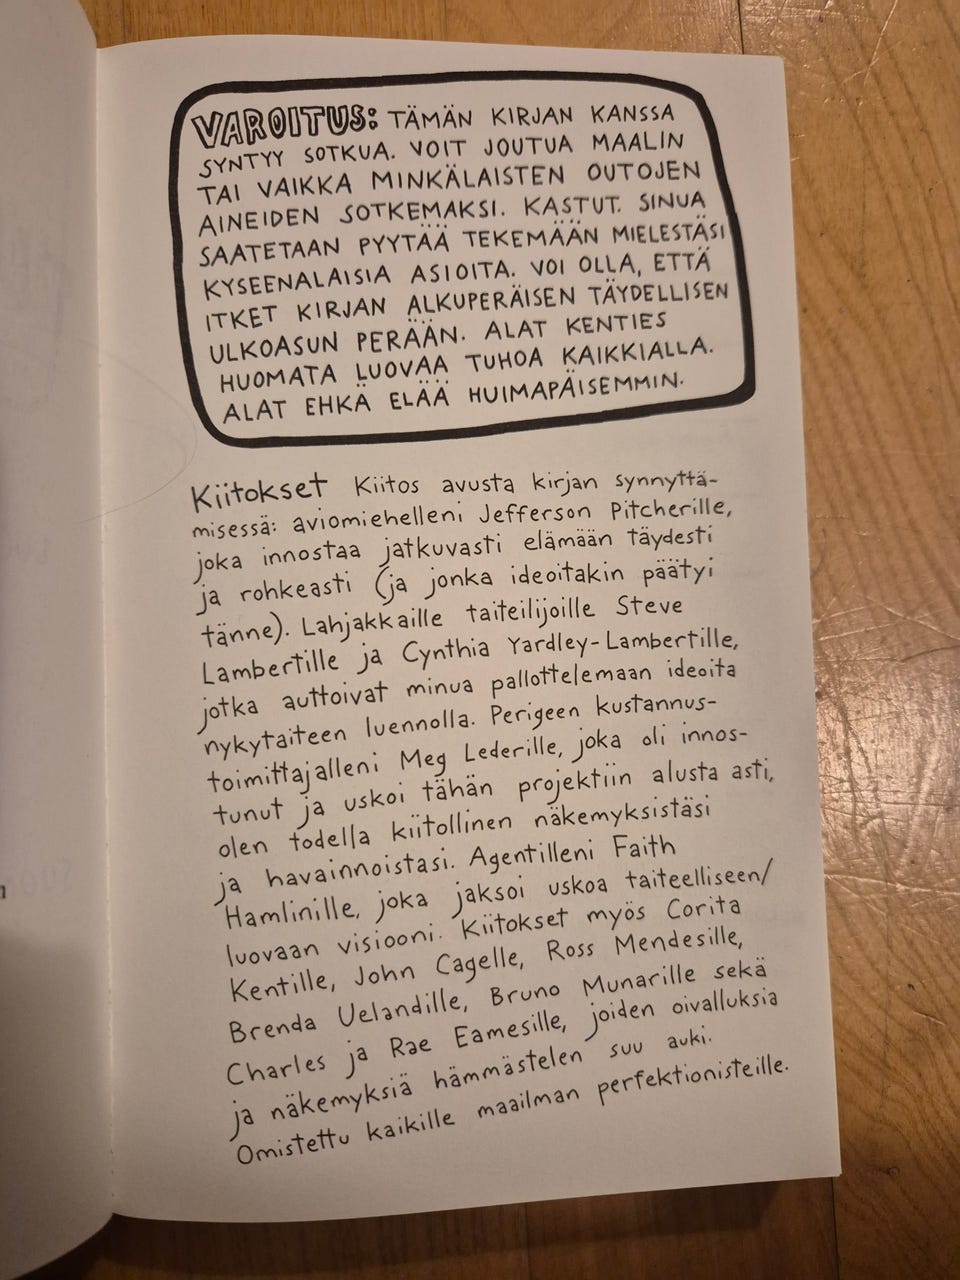 VAROITUS: TÄMÄN KIRJAN KANSSA
SYNTYY SOTKUA. VOIT JOUTUA MAALIN
TAI VAIKKA MINKÄLAISTEN OUTOJEN
AINEIDEN SOTKEMAKSI. KASTUT. SINUA
SAATETAAN PYYTÄÄ TEKEMÄÄN MIELESTÄSI
KYSEENALAISIA ASIOITA. VOI OLLA, ETTÄ
ITKET KIRJAN ALKUPERÄISEN TÄYDELLISEN
ULKOASUN PERÄÄN. ALAT KENTIES
HUOMATA LUOVAA TUHOA KAIKKIALLA.
ALAT EHKÄ ELÄÄ HUIMAPÄISEMMIN.
Kiitokset Kiitos avusta kirjan synnyttä-
misessä: aviomiehelleni Jefferson Pitcherille,
joka innostaa jatkuvasti elämään täydesti
ja rohkeasti (ja jonka ideoitakin päätyi
tänne). Lahjakkaille taiteilijoille Steve
Lambertille ja Cynthia Yardley-Lambertille,
jotka auttoivat minua pallottelemaan ideoita
nykytaiteen luennolla. Perigeen kustannus-
toimittajalleni Meg Lederille, joka oli innos-
tunut ja uskoi tähän projektiin alusta asti,
olen todella kiitollinen näkemyksistäsi
ja havainnoistasi. Agentilleni Faith
Hamlinille, joka jaksoi uskoa taiteelliseen/
luovaan visiooni. Kiitokset myös Corita
Kentille, John Cagelle, Ross Mendesille,
Brenda Uelandille, Bruno Munarille sekä
Charles ja Rae Eamesille, joiden oivalluksia
ja näkemyksiä hämmästelen suu auki.
Omistettu kaikille maailman perfektionisteille.